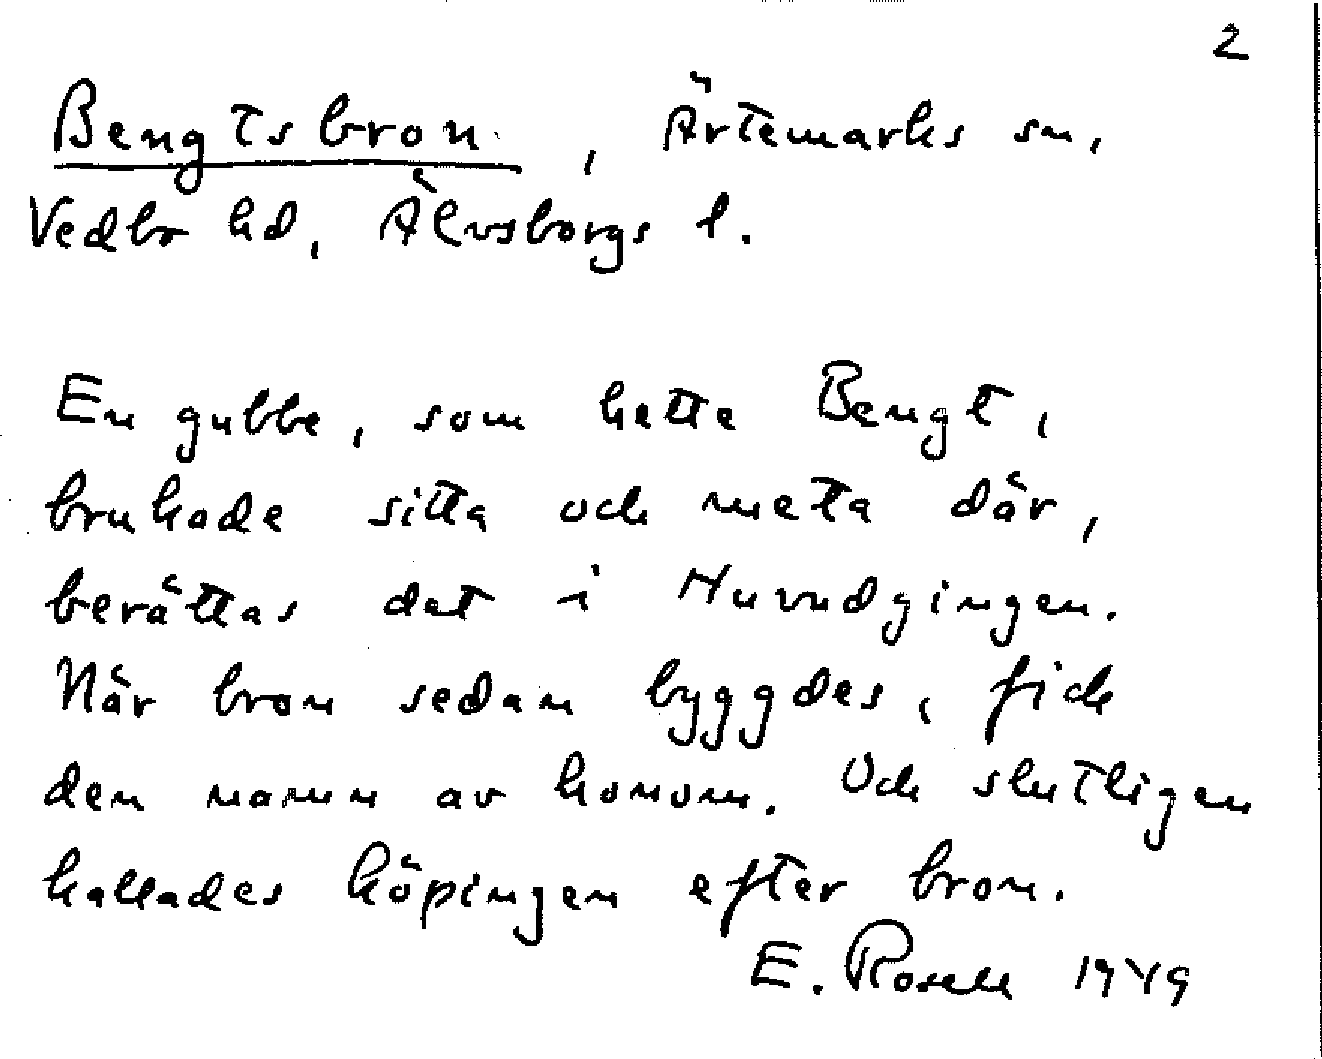 2
Bengtsbron, Ärtemarks sn,
Vedbo hd, Älvsborgs l.
En gubbe, som hette Bengt,
brukade sitta och meta där,
berättas det i Huvudgingen.
När bron sedan byggdes, fick
den namn av honom. Och slutligen
kallades köpingen efter bron.
E. Rosell 1949